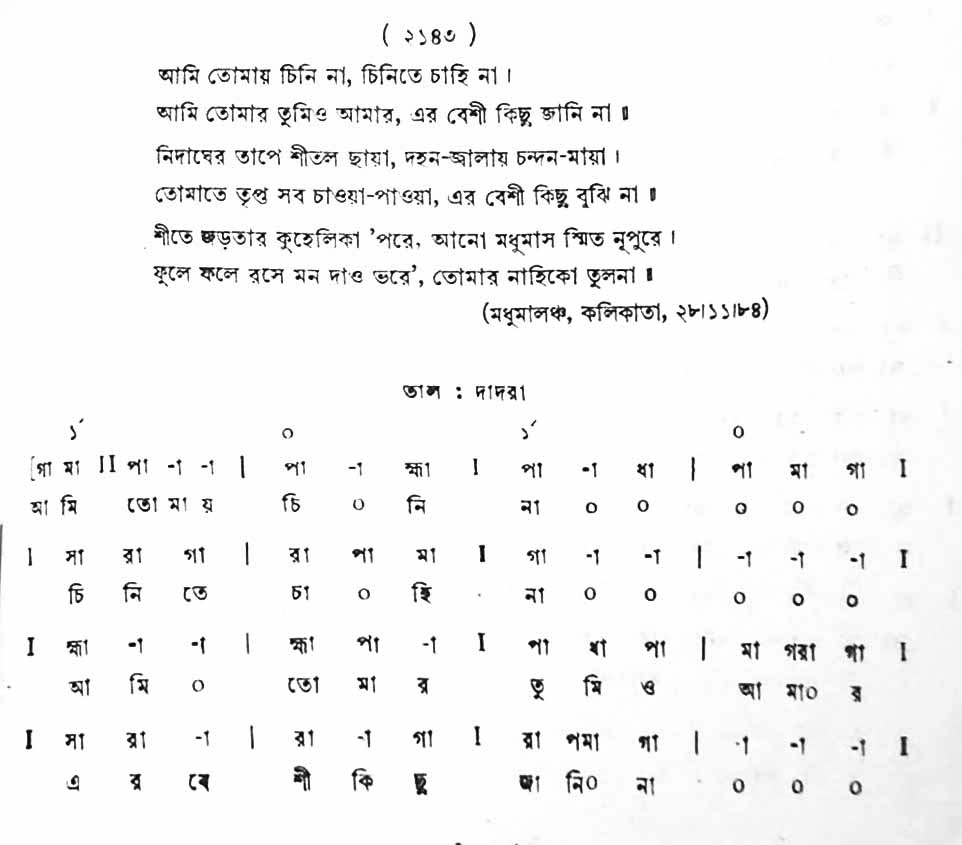 ( ২১৪৩ )
আমি তোমায় চিনি না, চিনিতে চাহি না ।
আমি তোমার তুমিও আমার, এর বেশী কিছু জানি না ॥
নিদাঘের তাপে শীতল ছায়া, দহন-জ্বালায় চন্দন-মায়া ।
তোমাতে তৃপ্ত সব চাওয়া-পাওয়া, এর বেশী কিছু বুঝি না ॥
শীতে জড়তার কুহেলিকা ’পরে, আনো মধুমাস স্মিত নূপুরে ।
ফুলে ফলে রসে মন দাও ভরে’, তোমার নাহিকো তুলনা ॥
(মধুমালঞ্চ, কলিকাতা, ২৮।১১।৮৪)
তাল : দাদরা
১´ ০ ১´ ০
[গা মা II পা -া -া | পা -া হ্মা I পা -া ধা | পা মা গা I
আ মি তো মা য় চি ০ নি না ০ ০ ০ ০ ০
I সা রা গা | রা পা মা I গা -া -া | -া -া -া I
চি নি তে চা ০ হি না ০ ০ ০ ০ ০
I হ্মা -া -া | হ্মা পা -া I পা ধা পা | মা গরা গা I
আ মি ০ তো মা র তু মি ও আ মা০ র
I সা রা -া | রা -া গা I রা পমা গা | -া -া -া I
এ র বে শী কি ছু জা নি০ না ০ ০ ০